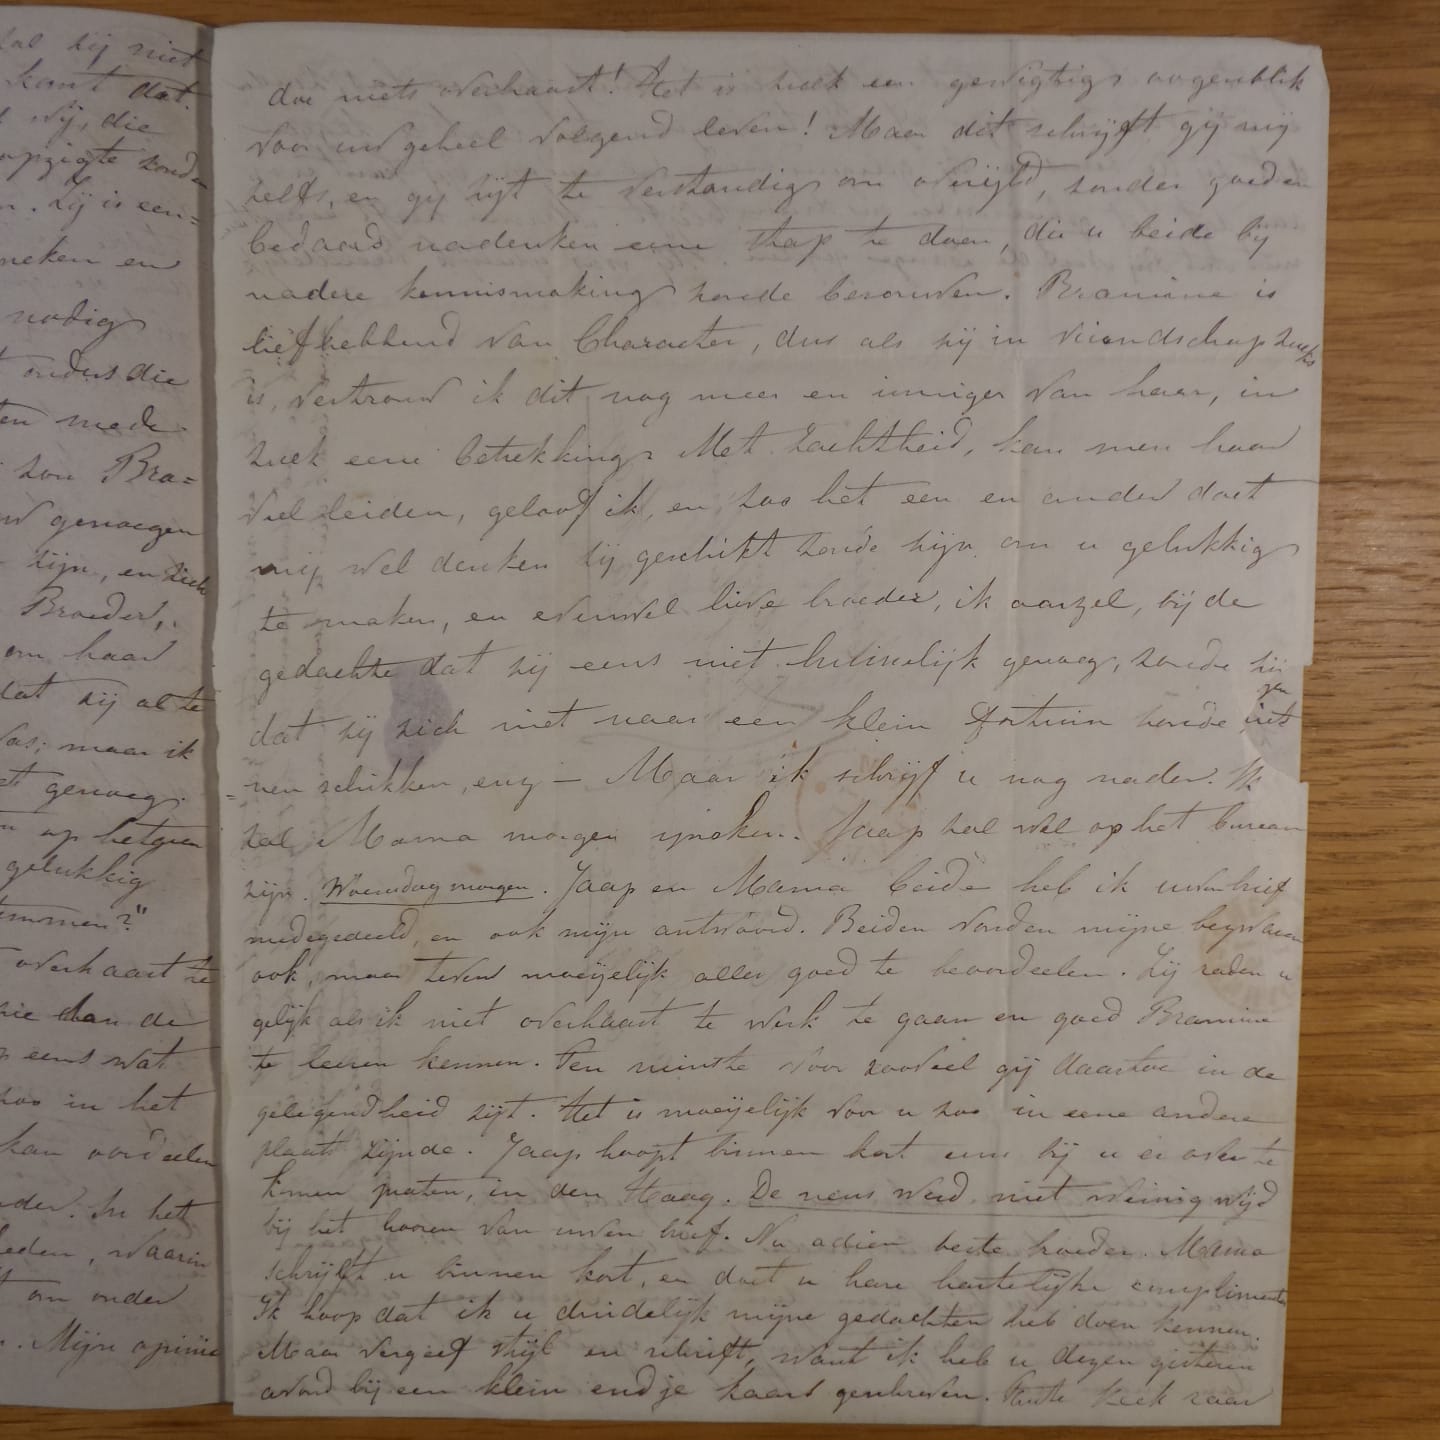 zal zij niet
komt dat
wij, die
opzigte zoud
Zij is een=
neken en
nodig
ouders die
ten mede
zou Bra=
genoegen
zijn, en zich
Broeder,
om haar
dat zij al te
was; maar ik
genoeg.
op hetgeen
gelukkig
overhaast te
zie dan de
eens wat
zoo in het
kan oordeelen
In het
leden, waarin
om onder
Mijn opinie
doe niets overhaast! Het is zulk een gewigtig oogenblik
voor uw geheel volgend leven! Maar dit schrijft gij mij
zelfs, en gij zijt te verstandig om overijld, zonder goed en
bedaard nadenken eene stap te doen, die u beide bij
nadere kennismaking zoude berouwen. Bramine is
liefhebbend van Character, dus als zij in vriendschap zulks
is, vertrouw ik dit nog meer en inniger van haar, in
zulk eene betrekking. Met zachtheid, kan men haar
veel leiden, geloof ik, en zoo het een en ander doet
mij wel denken zij geschikt zoude zijn om u gelukkig
te maken, en evenwel lieve broeder, ik aarzel, bij de
gedachte dat zij eens niet huiselijk genoeg, zoude zijn
dat zij zich niet naar een klein fortuin zoude
nen schikken, enz — Maar ik schrijf u nog nader. Ik
zal Mama morgen spreken. Jaap zal wel op het bureau
zijn. Woensdag morgen. Jaap en Mama beide heb ik uwen brief
medegedeeld, en ook mijn antwoord. Beiden vonden mijne bezwaren
ook, maar teven moeijelijk alles goed te beoordeelen. Zij raden u
gelijk als ik niet overhaast te werk te gaan en goed Bramine
te leeren kennen. Ten minste voor zooveel gij daartoe in de
gelegendheid zijt. Het is moeijelijk voor u zoo in eene andere
plaats zijnde. Jaap hoopt binnen kort eens bij u er over te
komen praten, in den Haag. De neus werd niet weinig wijd
bij het hooren van uwen brief. Nu adieu beste broeder. Mama
schrijft u binnen kort, en doet u hare hartelijke complimenten
Ik hoop dat ik u duidelijk mijne gedachten heb doen kennen.
Maar vergeef stijl en schrift, want ik heb u dezen gisteren
avond bij een klein endje kaars geschreven. keek naar